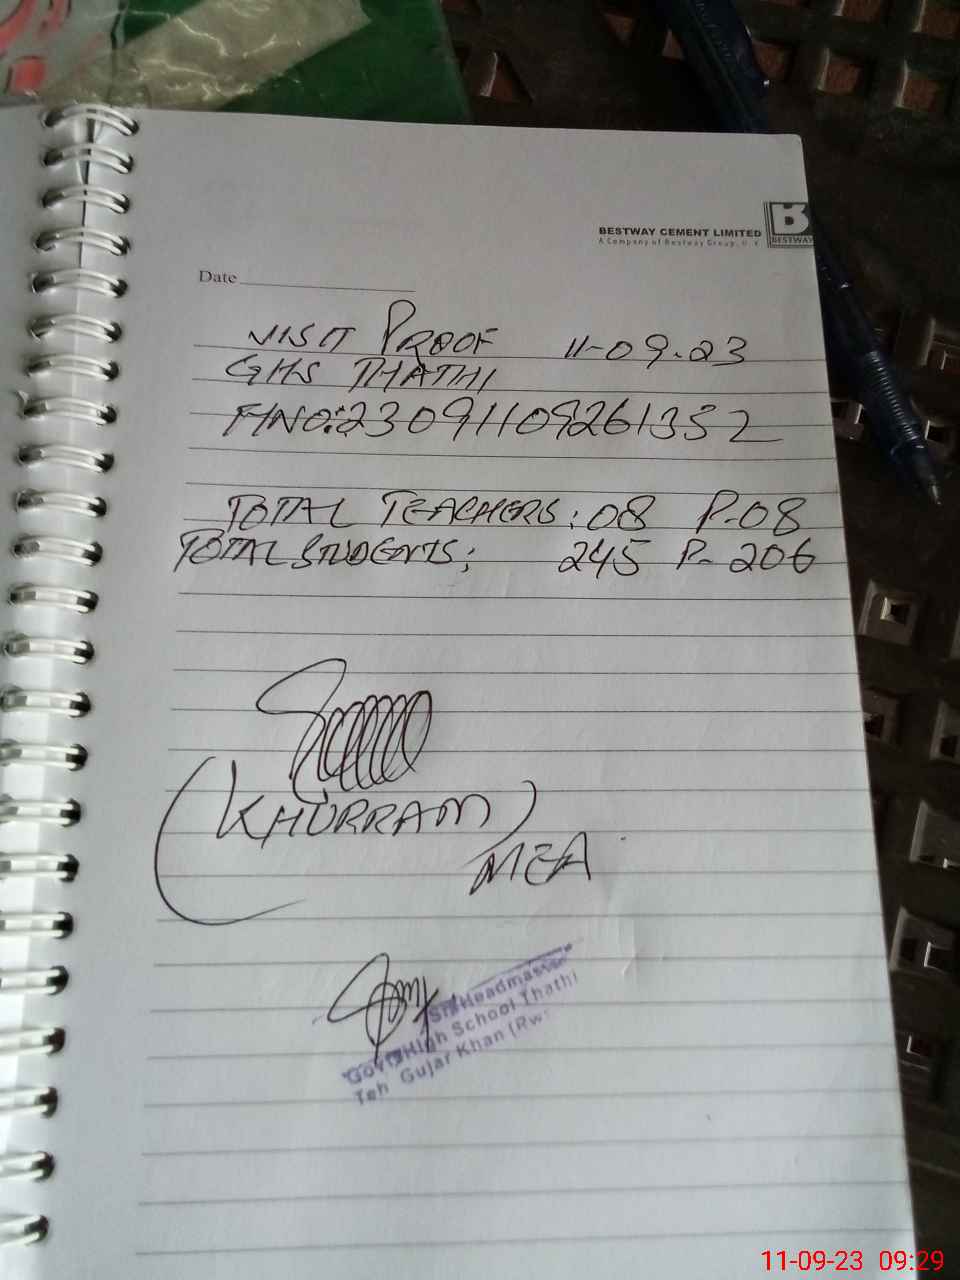 BESTWAY CEMENT LIMITED
A Company of Bestway Group, U.K
BESTWAY
Date
VISIT PROOF 11-09-23
GHS THATHI
FHNO:23091109261352
TOTAL TEACHERS: 08 P-08
TOTAL STUDENTS: 245 P-206
(KHURRAM)
MEA
Headmaster
Govt High School Thathi
Teh Gujar Khan (Rw
11-09-23 09:29